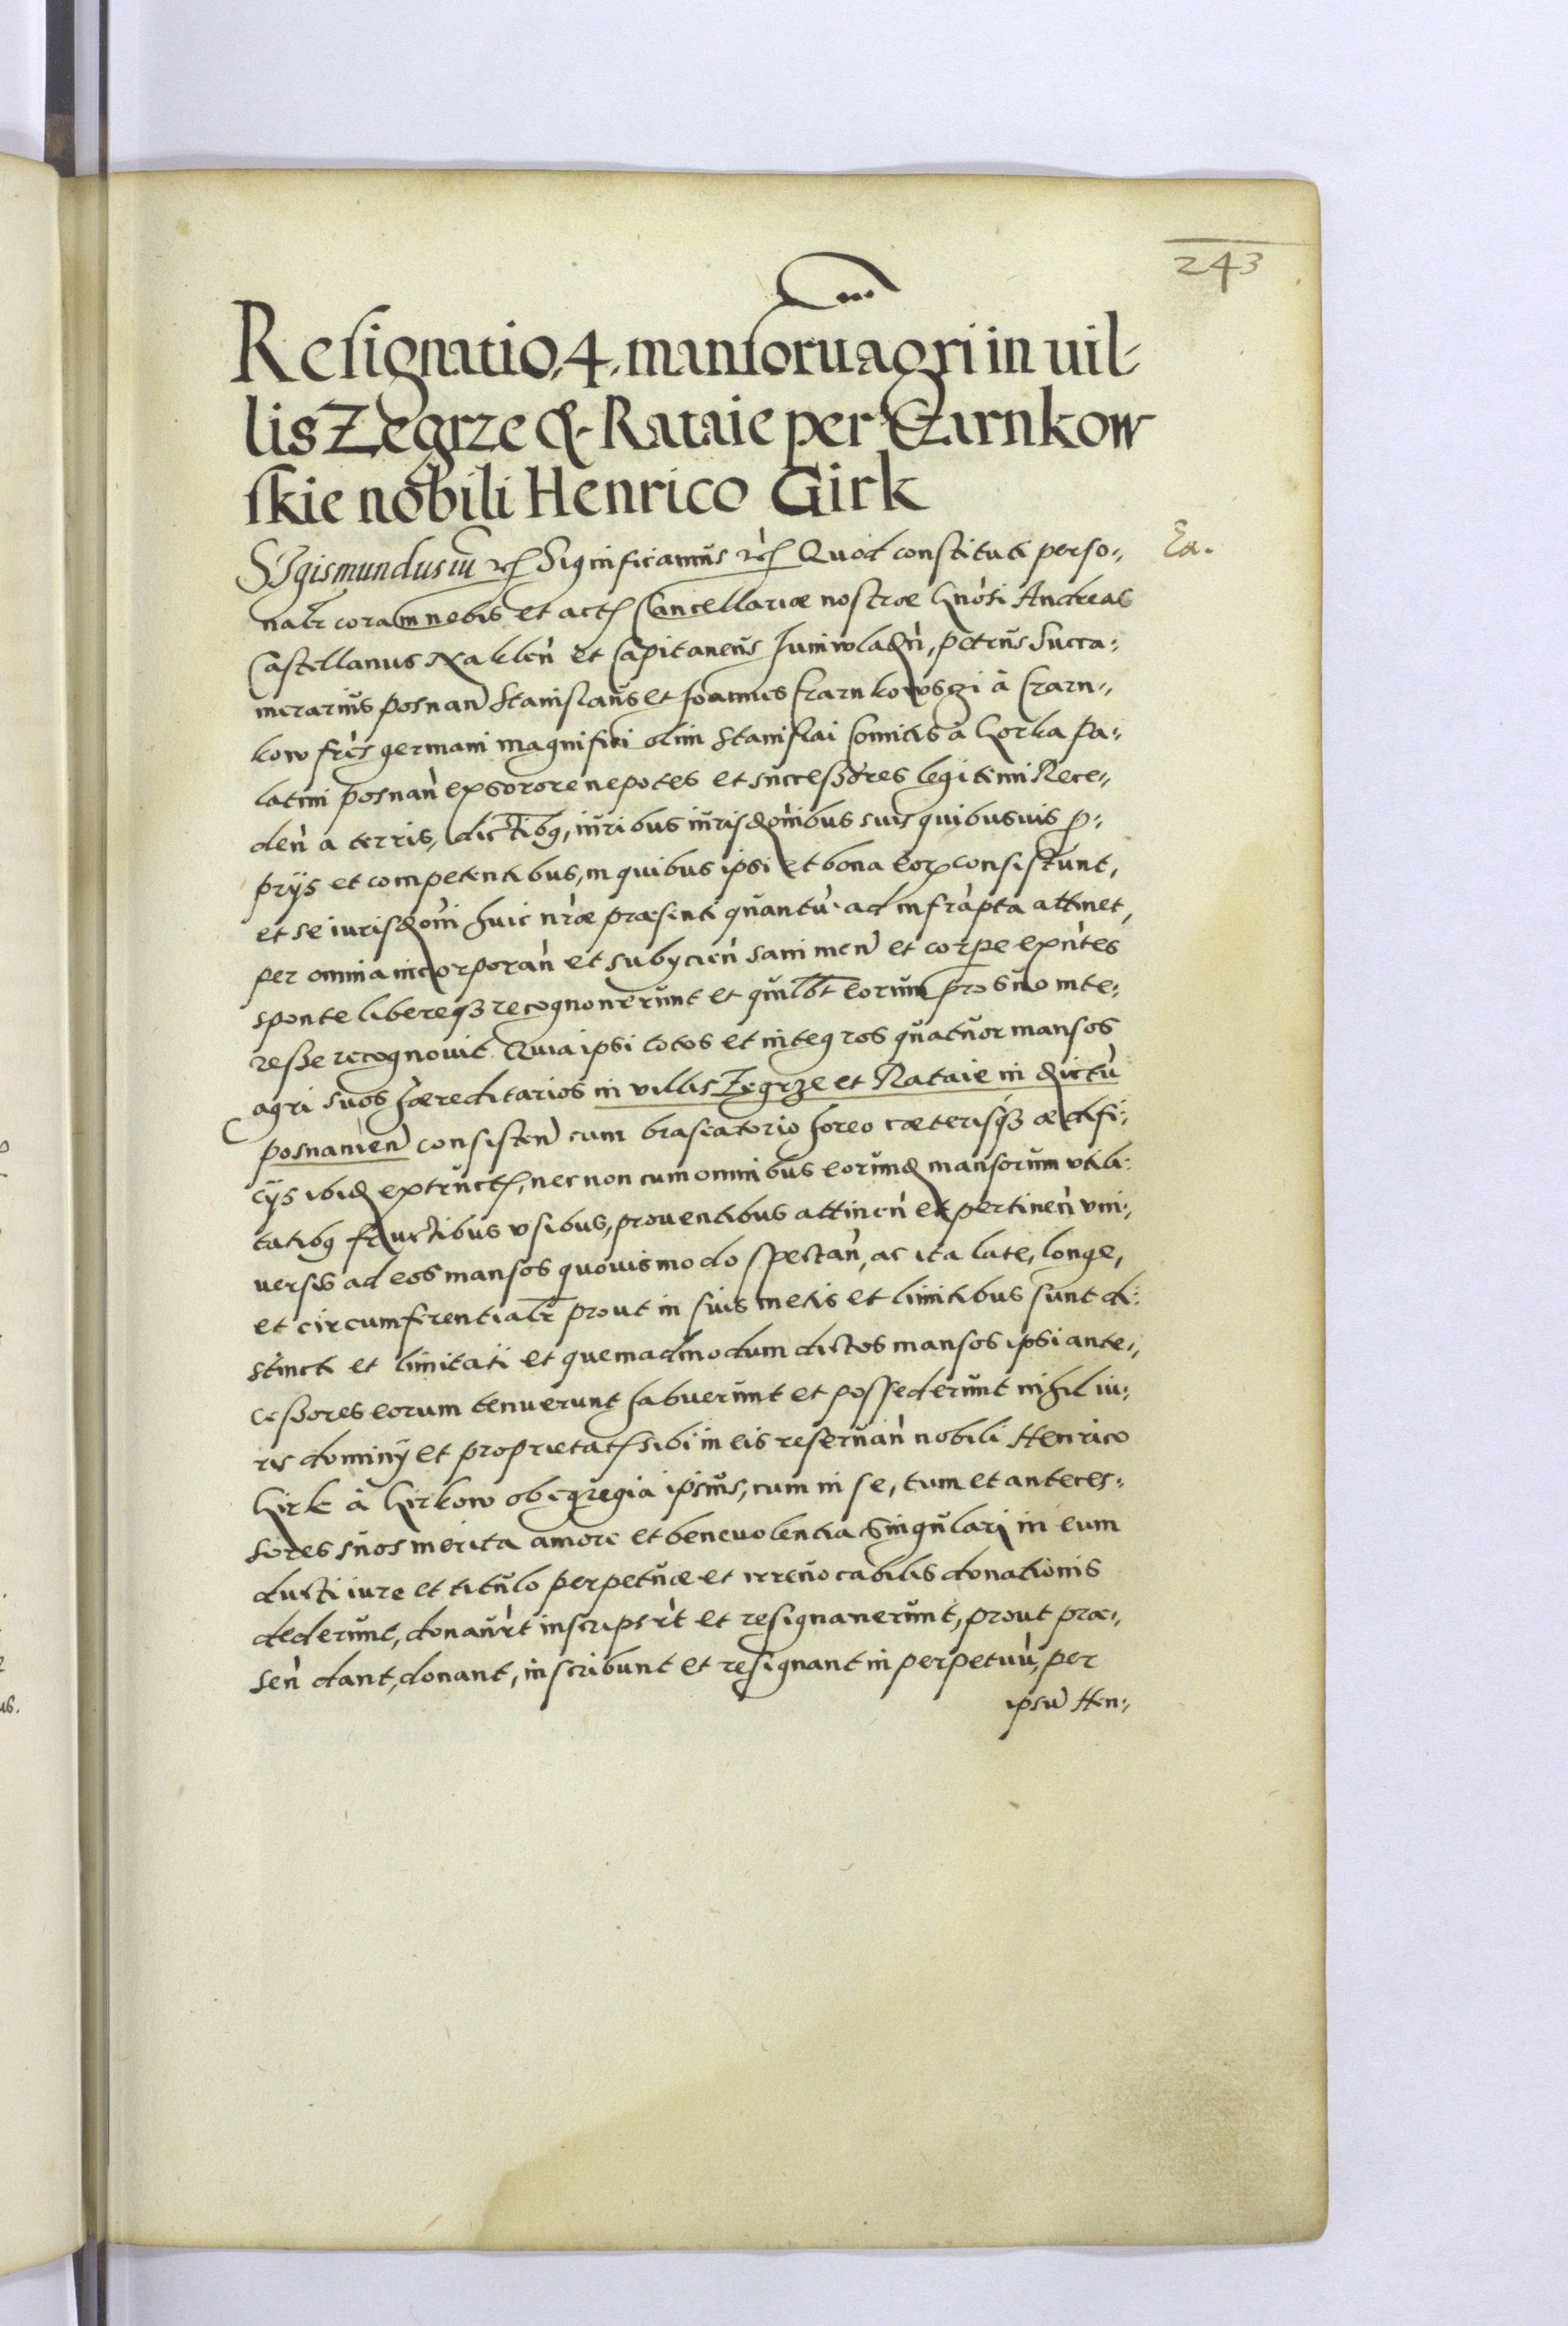 243
Resignatio 4 mansorũ agri in uil-
lis Zegrze & Rataie per Czarnkow
skie nobili Henrico Girk
Ea.
Sigismundus iii etc Significamus etc Quod constituti perso-
nalr coram nobis et actis Cancellariæ nostræ Gnosi Andreas
Castellanus Naklen et Capitaneus Juniwladn, Petrus Succa-
merarius Posnan Stanislaus et Joannes Czarnkowsczi à Czarn-
kow frēs germani magnifici olim Stanislai Comitis à Gorka Pa-
latini Posnan ex sorore nepotes et successores legitimi Rece-
den a terris, districtibq, iuribus iurisdonibus suis quibusuis p-
prijs et competentibus, in quibus ipsi et bona eor consistunt,
et se iurisdoni huic nræ præsenti quantù ad infrapta attinet,
per omnia incorporan et subijcien sani men et corpe exntes
sponte libereqz recognouerunt et quilbt eorum pro suo inte-
resse recognouit Quia ipsi totos et integros quatuor mansos
agri suos hæreditarios in villis Zegrze et Rataie in distctu
Posnanien consisten cum braseatorio horeo cæterisqz ædifi-
cijs ibid extructis, nec non cum omnibus eorund mansorum vtili-
tatibq fructibus vsibus, prouentibus attinen et pertinen vni-
uersis ad eos mansos quouismodo spectan, ac ita late, longe,
et circumferentialr prout in suis metis et limitibus sunt di-
stincti et limitati et quemadmodum dictos mansos ipsi ante-
cessores eorum tenuerunt habuerunt et possederunt nihil iu-
ris dominij et proprietatis sibi in eis reseruan nobili Henrico
Girk à Girkow ob egregia ipsius, cum in se, tum et anteces-
sores suos merita amore et beneuolentia singulari in eum
ducti iure et titulo perpetuæ et irreuocabilis donationis
dederunt, donaurt inscripsrt et resignauerunt, prout præ-
sen dant, donant, inscribunt et resignant in perpetuù, per
ipsu Hen-